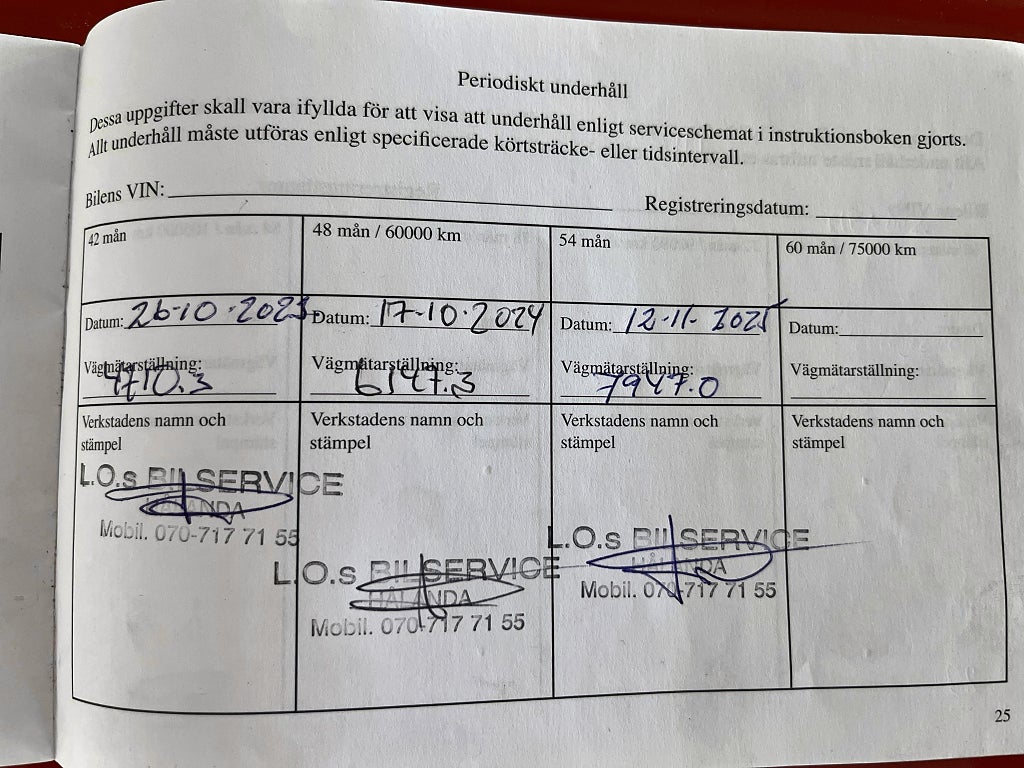 Periodiskt underhåll
Dessa uppgifter skall vara ifyllda för att visa att underhåll enligt serviceschemat i instruktionsboken gjorts.
Allt underhåll måste utföras enligt specificerade körtsträcke- eller tidsintervall.
Bilens VIN:
Registreringsdatum:
42 mån
48 mån / 60000 km
54 mån
60 mån / 75000 km
Datum: 26-10-2023
Datum: 17-10-2024
Datum: 12-11-2025
Datum:
Vägmätarställning:
4710.3
Vägmätarställning:
6147.3
Vägmätarställning:
7947.0
Vägmätarställning:
Verkstadens namn och
stämpel
Verkstadens namn och
stämpel
Verkstadens namn och
stämpel
Verkstadens namn och
stämpel
L.O.s BILSERVICE
HÅLANDA
Mobil. 070-717 71 55
L.O.s BILSERVICE
HÅLANDA
Mobil. 070-717 71 55
L.O.s BILSERVICE
HÅLANDA
Mobil. 070-717 71 55
25